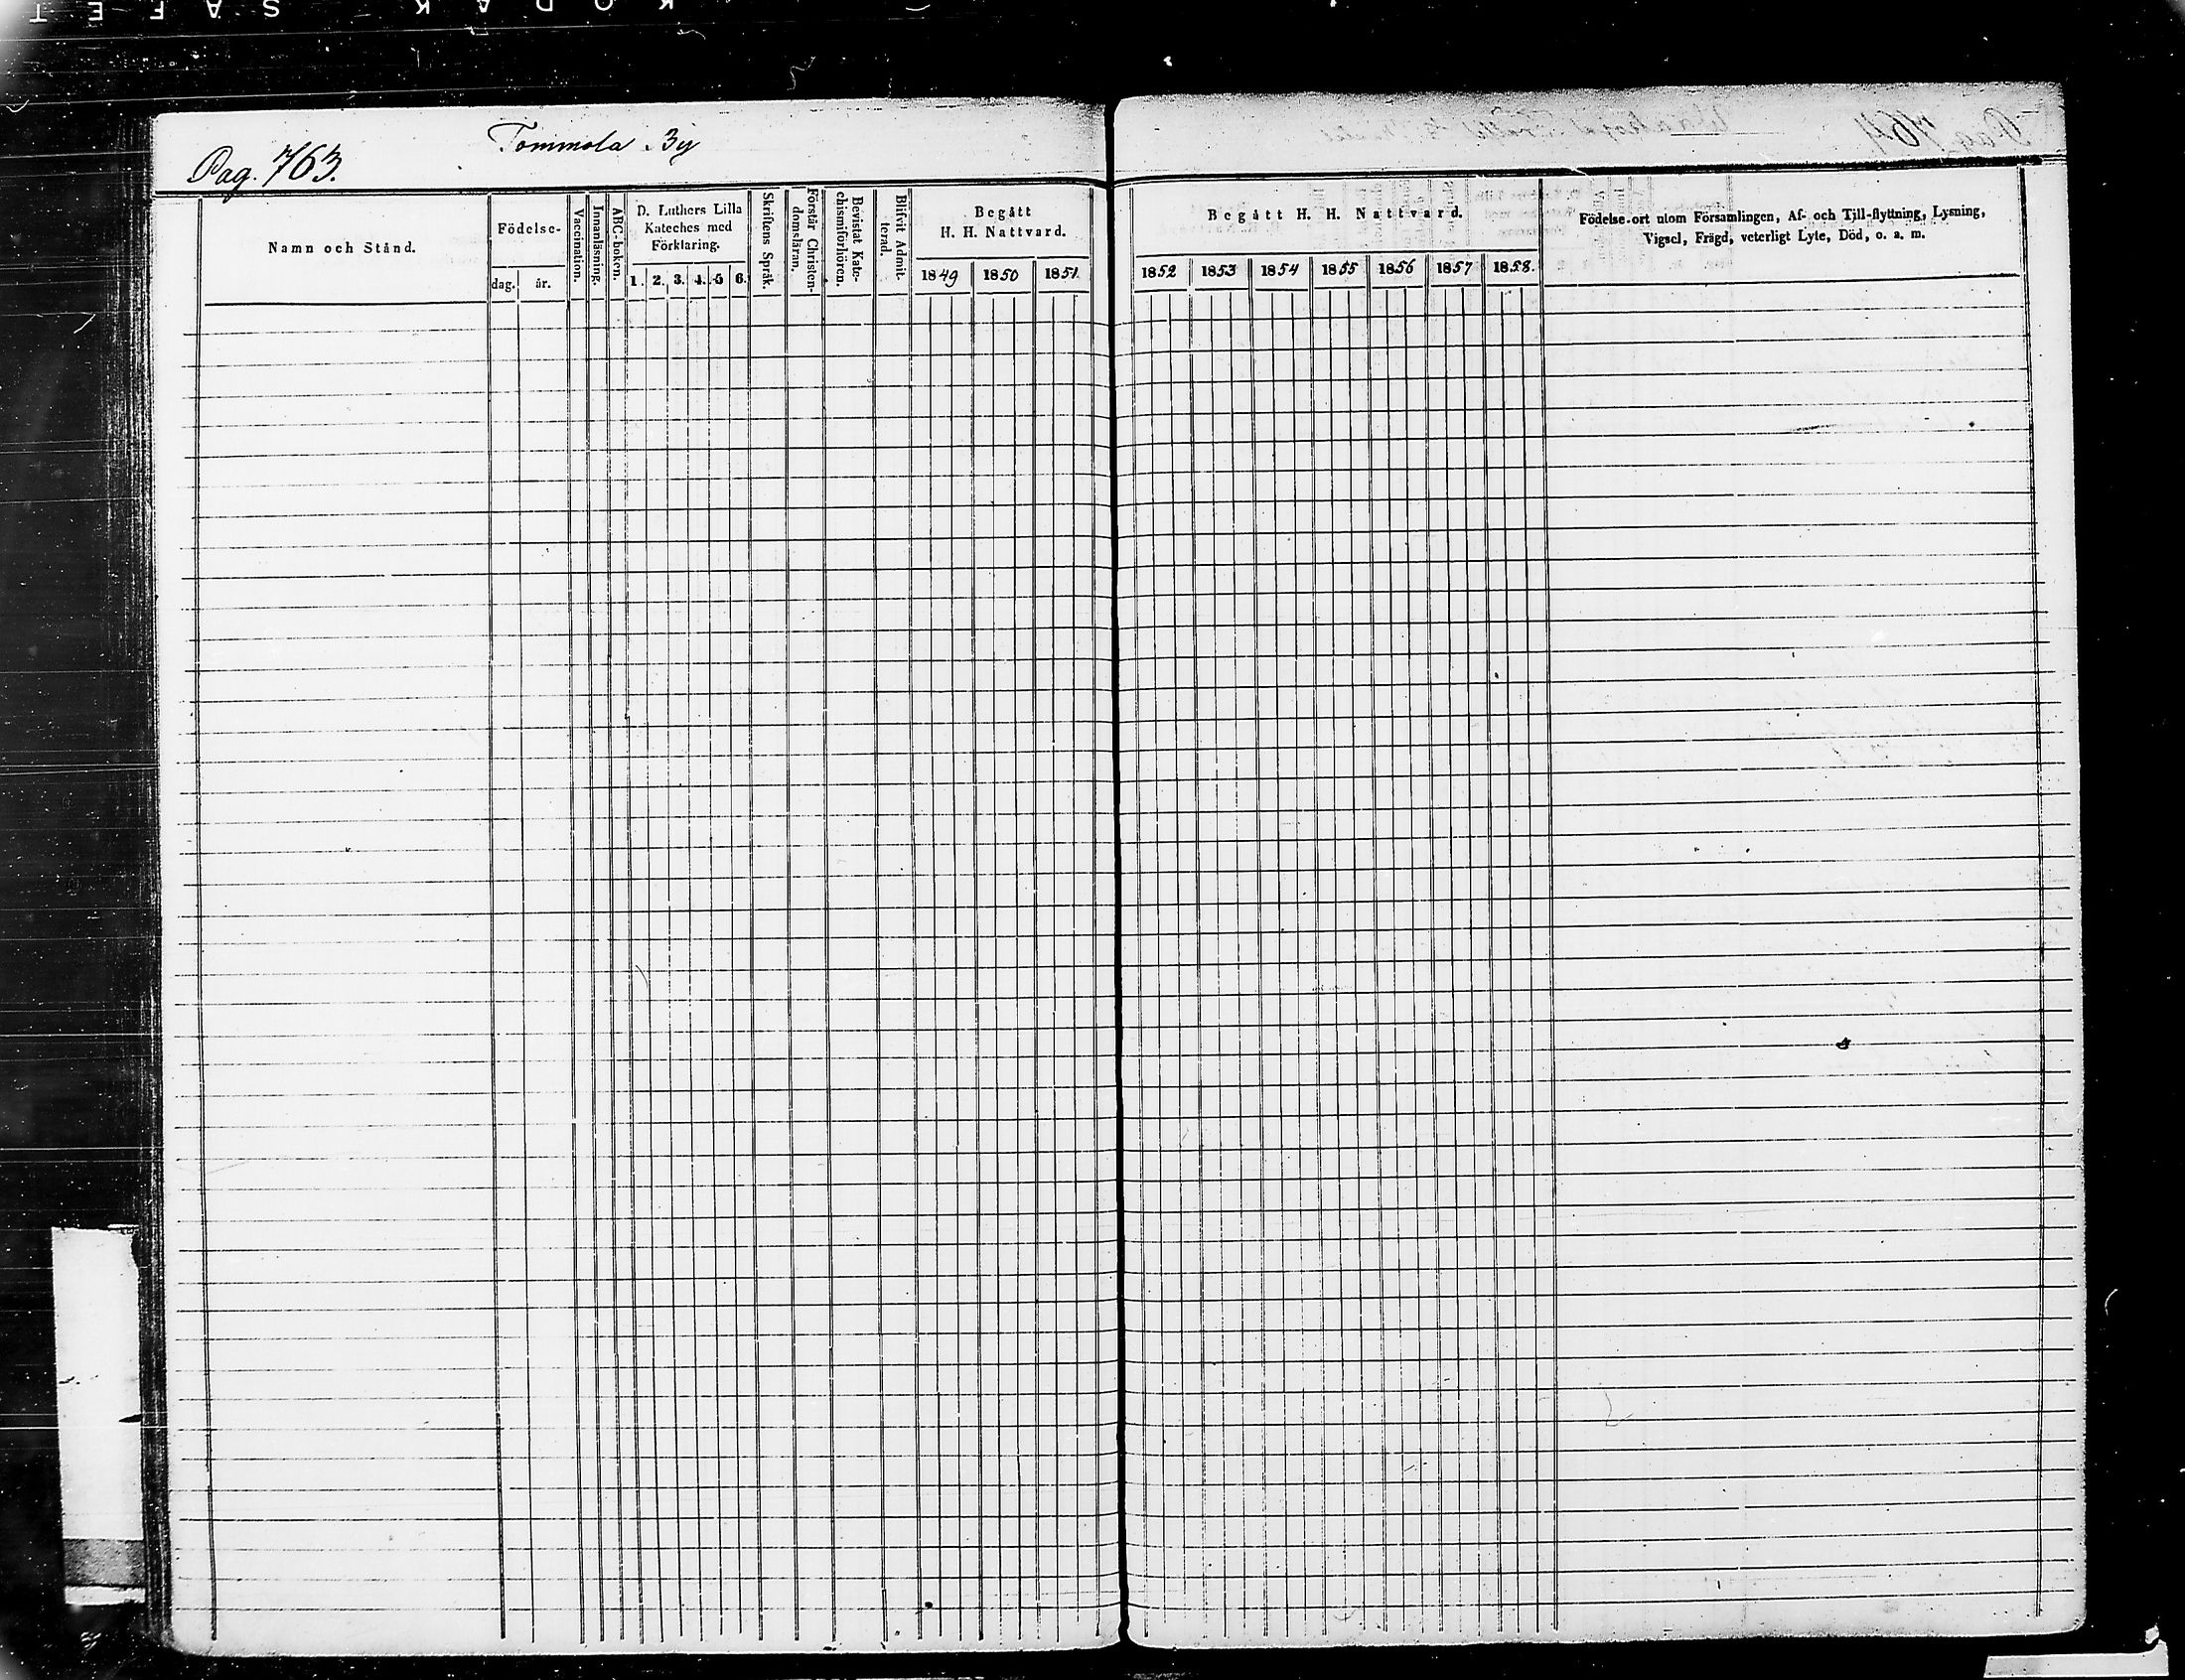 KODAK SAFET
Pag. 763.
Tommola By
Namn och Stånd.
Födelse-
dag.
år.
Vaccination.
Innanläsning.
ABC-boken.
D. Luthers Lilla
Kateches med
Förklaring.
1. 2. 3. 4. 5 6.
Skriftens Språk.
Förstår Christen-
domsläran.
Bevistat Kate-
chismiförhören.
Blifvit Admit-
terad.
Begått
H. H. Nattvard.
1849 1850 1851
Begått H. H. Nattvard.
1852 1853 1854 1855 1856 1857 1858.
Födelse-ort utom Församlingen, Af- och Till-flyttning, Lysning,
Vigsel, Frägd, veterligt Lyte, Död, o. a. m.
Pag. 764